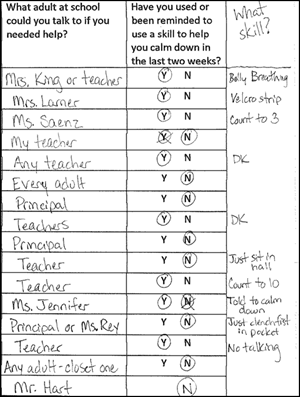 What adult at school could you talk to if you needed help?
Have you used or been reminded to use a skill to help you calm down in the last two weeks?
What skill?
Mrs. King or teacher Y N Belly Breathing
Mrs. Larner Y N Velcro strip
Ms. Saenz Y N Count to 3
My teacher Y N
Any teacher Y N DK
Every adult Y N
Principal Y N
Teachers Y N DK
Principal Y N
Teacher Y N Just sit in hall
Teacher Y N Count to 10
Ms. Jennifer Y N Told to calm down
Principal or Ms. Rey Y N Just clench fist in pocket
Teacher Y N No talking
Any adult-closet one Y N
Mr. Hart N